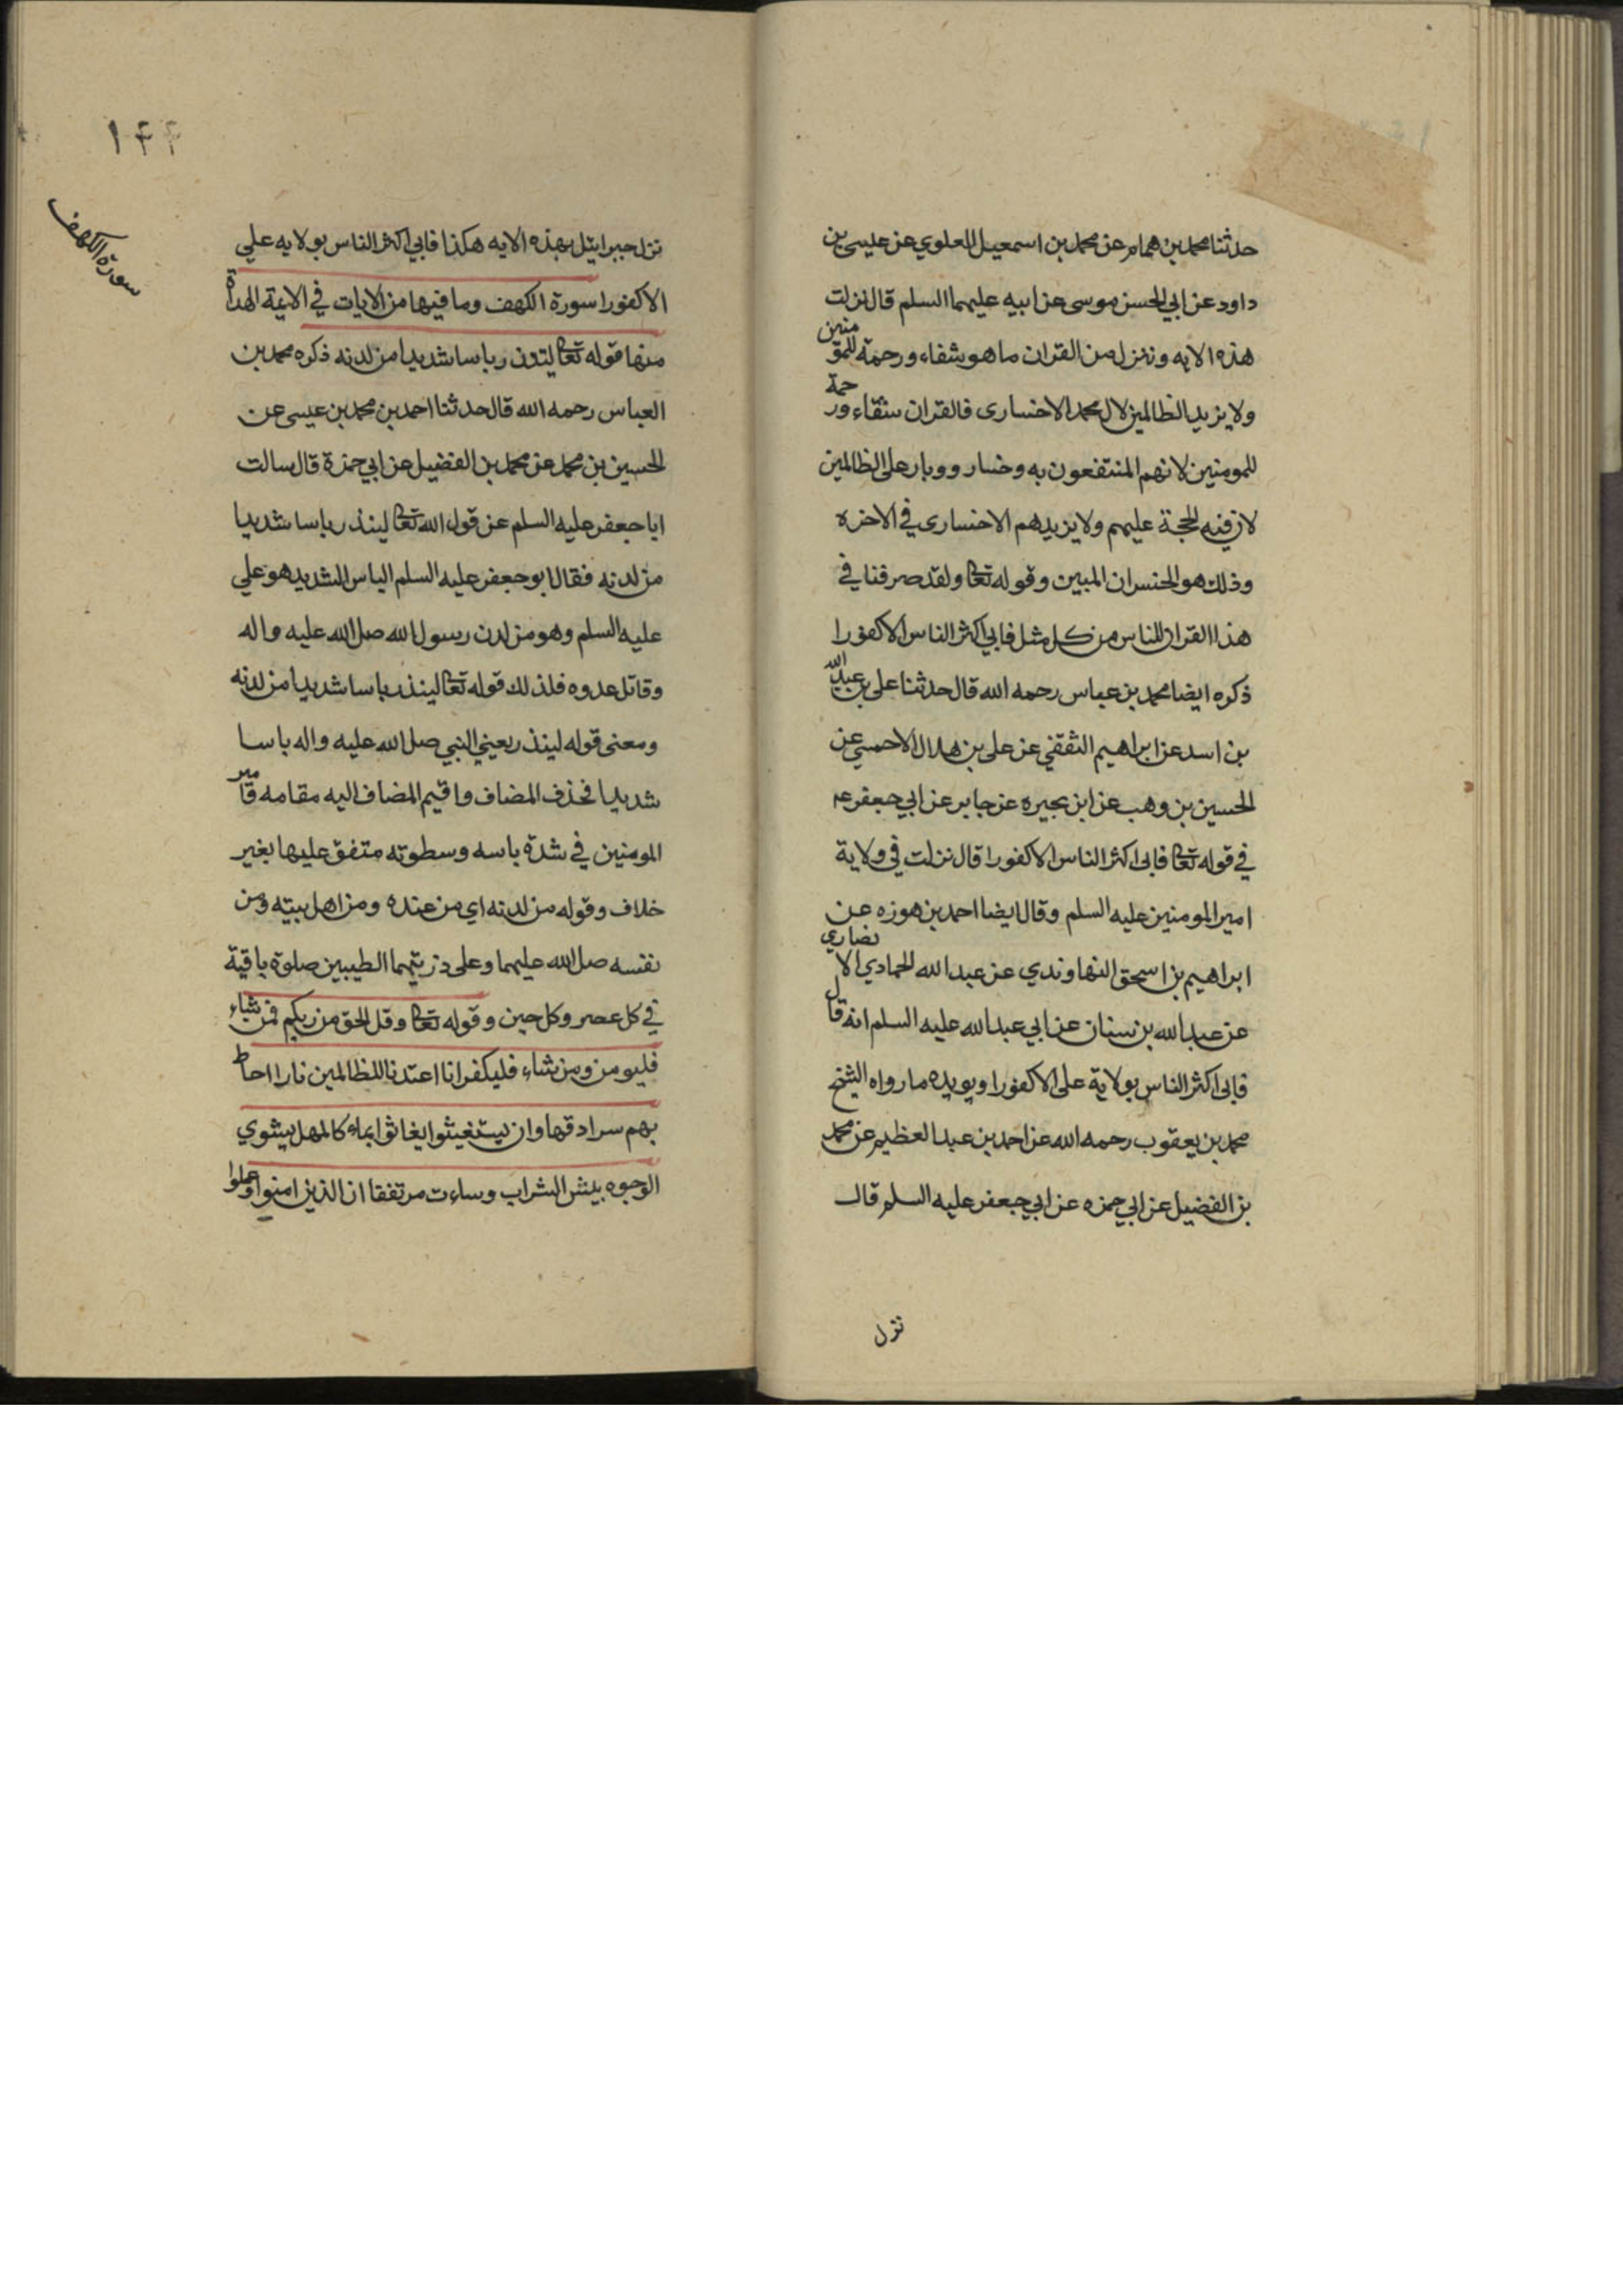 حدثنا محمد بن همام عن محمد بن اسمعيل العلوي عن عيسى بن
داود عن ابي الحسن موسى عن ابيه عليهما السلم قال نزلت
هذه الايه وننزل من القران ما هو شفاء ورحمة للمومنين
ولا يزيد الظالمين لال محمد الا خسارى فالقران شفاء ورحمة
للمومنين لانهم المنتفعون به وخسار ووبار على الظالمين
لان فيه الحجة عليهم ولا يزيدهم الا خسارى في الاخره
وذلك هو الخسران المبين وقوله تعا ولقد صرفنا في
هذا القران للناس من كل مثل فابي اكثر الناس الا كفورا
ذكره ايضا محمد بن عباس رحمه الله قال حدثنا علي بن عبد الله
بن اسد عن ابراهيم الثقفي عن علي بن هلال الاحمسي عن
الحسين بن وهب عن ابن بحيره عن جابر عن ابي جعفر عم
في قوله تعا فابى اكثر الناس الا كفورا قال نزلت في ولاية
امير المومنين عليه السلم وقال ايضا احمد بن هوزه عن
ابراهيم بن اسحق النهاوندي عن عبد الله الحمادي الانصاري
عن عبد الله بن سنان عن ابي عبد الله عليه السلم انه قال
فابى اكثر الناس بولاية على الا كفورا ويويده ما رواه الشيخ
محمد بن يعقوب رحمه الله عن احمد بن عبد العظيم عن محمد
بن الفضيل عن ابي حمزه عن ابي جعفر عليه السلم قال
نزل
١٤٤
سورة الكهف
نزل جبرائيل بهذه الايه هكذا فابي اكثر الناس بولايه علي
الا كفورا سورة الكهف وما فيها من الايات في الائمة الهداة
منها قوله تعا لينذر باسا شديدا من لدنه ذكره محمد بن
العباس رحمه الله قال حدثنا احمد بن محمد بن عيسى عن
الحسين بن محمد عن محمد بن الفضيل عن ابي حمزة قال سالت
ابا جعفر عليه السلم عن قول الله تعا لينذر باسا شديدا
من لدنه فقال ابو جعفر عليه السلم الباس الشديد هو علي
عليه السلم وهو من لدن رسول الله صل الله عليه واله
وقاتل عدوه فلذلك قوله تعا لينذر باسا شديدا من لدنه
ومعنى قوله لينذر يعني النبي صل الله عليه واله باسا
شديدا فحذف المضاف واقيم المضاف اليه مقامه
المومنين في شدة باسه وسطوته متفق عليها بغير
خلاف وقوله من لدنه اي من عنده ومن اهل بيته ومن
نفسه صل الله عليهما وعلى ذريتهما الطيبين صلوة باقية
في كل عصر وكل حين وقوله تعا وقل الحق من ربكم فمن شاء
فليومن ومن شاء فليكفر انا اعتدنا للظالمين نارا احاط
بهم سرادقها وان يستغيثوا يغاثوا بماء كالمهل يشوي
الوجوه بيئس الشراب وساءت مرتفقا ان الذين امنوا وعملوا